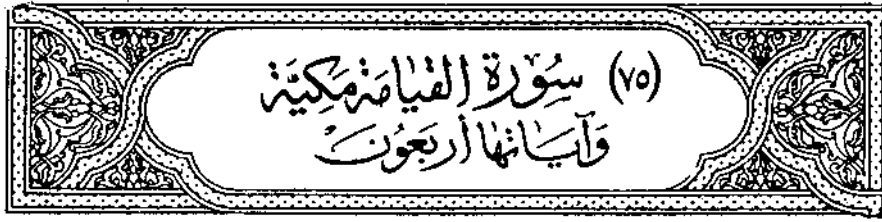 (٧٥) سُورَةُ القِيَامَةِ مَكِيَّة
وَآيَاتُهَا أَرْبَعُونَ